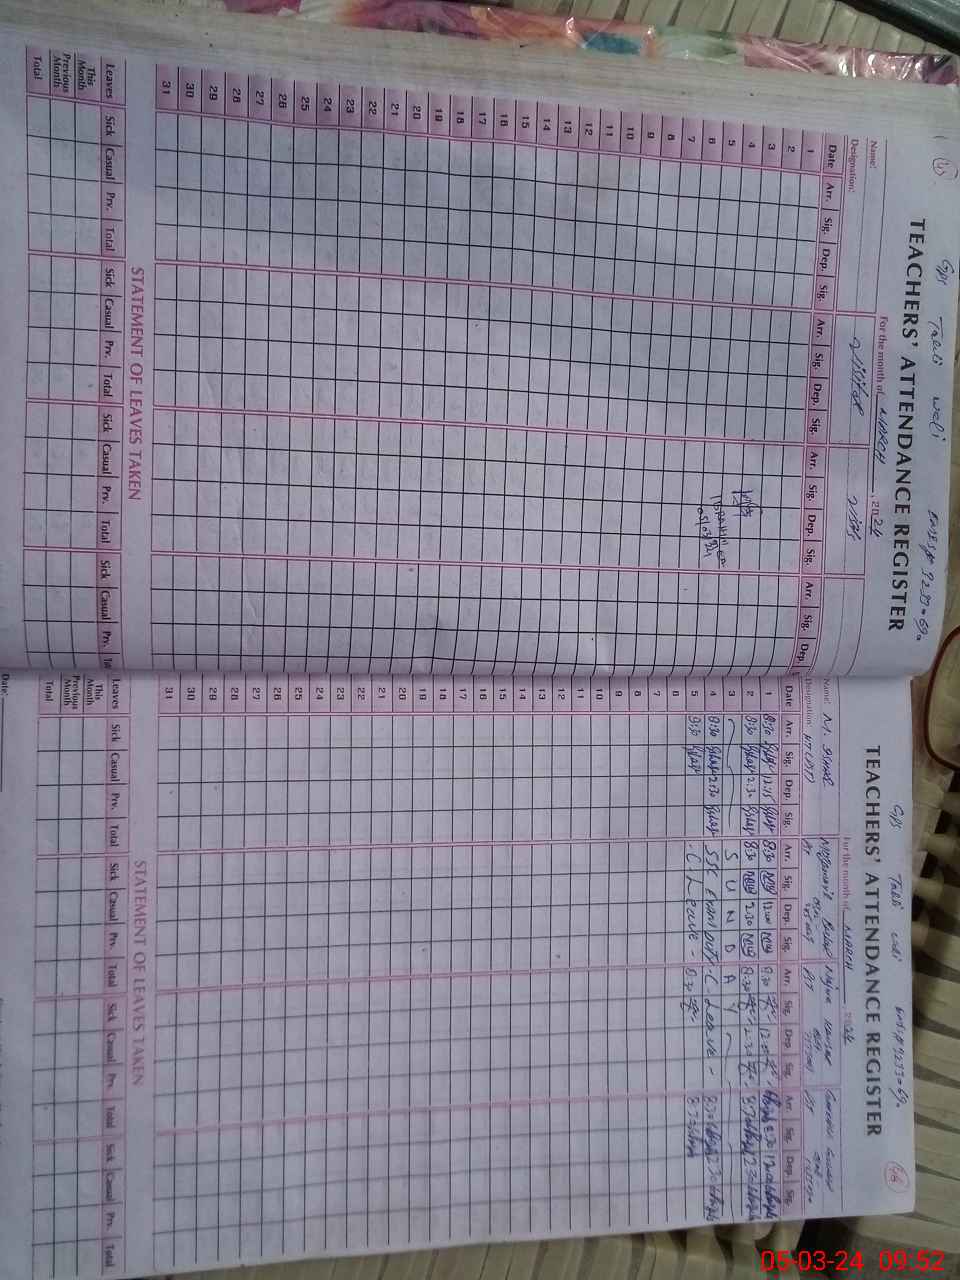 GPS Talli Wali
TEACHERS' ATTENDANCE REGISTER
For the month of MARCH, 2024
Name:
Designation:
Visitor
Date Arr. Sig. Dep. Sig. Arr. Sig. Dep. Sig. Arr. Sig. Dep. Sig. Arr. Sig. Dep.
1
2
3
4
5
6
7
8
9
10
11
12
13
14
15
16
17
18
19
20
21
22
23
24
25
26
27
28
29
30
31
STATEMENT OF LEAVES TAKEN
Leaves Sick Casual Prv. Total Sick Casual Prv. Total Sick Casual Prv. Total Sick Casual Prv.
This Month
Previous Month
Total
GPS Talli Wali
46
TEACHERS' ATTENDANCE REGISTER
For the month of MARCH, 2024
Name: M.
Designation:
Date Arr. Sig. Dep. Sig. Arr. Sig. Dep. Sig. Arr. Sig. Dep. Sig. Arr. Sig. Dep. Sig.
1 8:30 12:15 8:30 12:00 8:30 12:00 8:30 12:00
2 8:30 2:30 8:30 2:30 8:30 2:30 8:30 2:30
3 SUNDAY
4 8:30 2:30 SSC Exam Duty C Leave 8:30 2:30
5 8:30 C Leave 8:30 8:30
6
7
8
9
10
11
12
13
14
15
16
17
18
19
20
21
22
23
24
25
26
27
28
29
30
31
STATEMENT OF LEAVES TAKEN
Leaves Sick Casual Prv. Total Sick Casual Prv. Total Sick Casual Prv. Total Sick Casual Prv. Total
This Month
Previous Month
Total
Date:
05-03-24 09:52